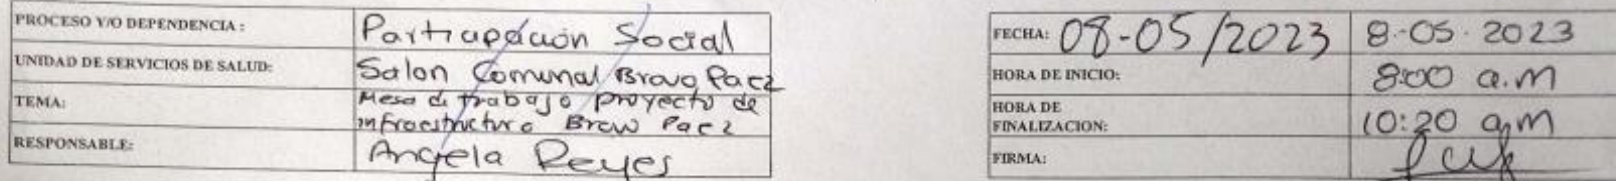 PROCESO Y/O DEPENDENCIA : Participación Social
UNIDAD DE SERVICIOS DE SALUD: Salon Comunal Bravo Paez
TEMA: Mesa de trabajo proyecto de
infraestructura Bravo Paez
RESPONSABLE: Angela Reyes
FECHA: 08-05/2023 8-05-2023
HORA DE INICIO: 8:00 a.m
HORA DE
FINALIZACION: 10:20 am
FIRMA: